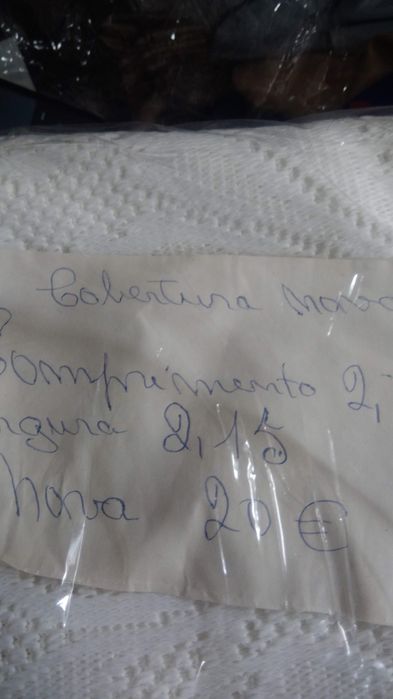 Cobertura nova
Comprimento 2,
rgura 2,15
Nova 20 €